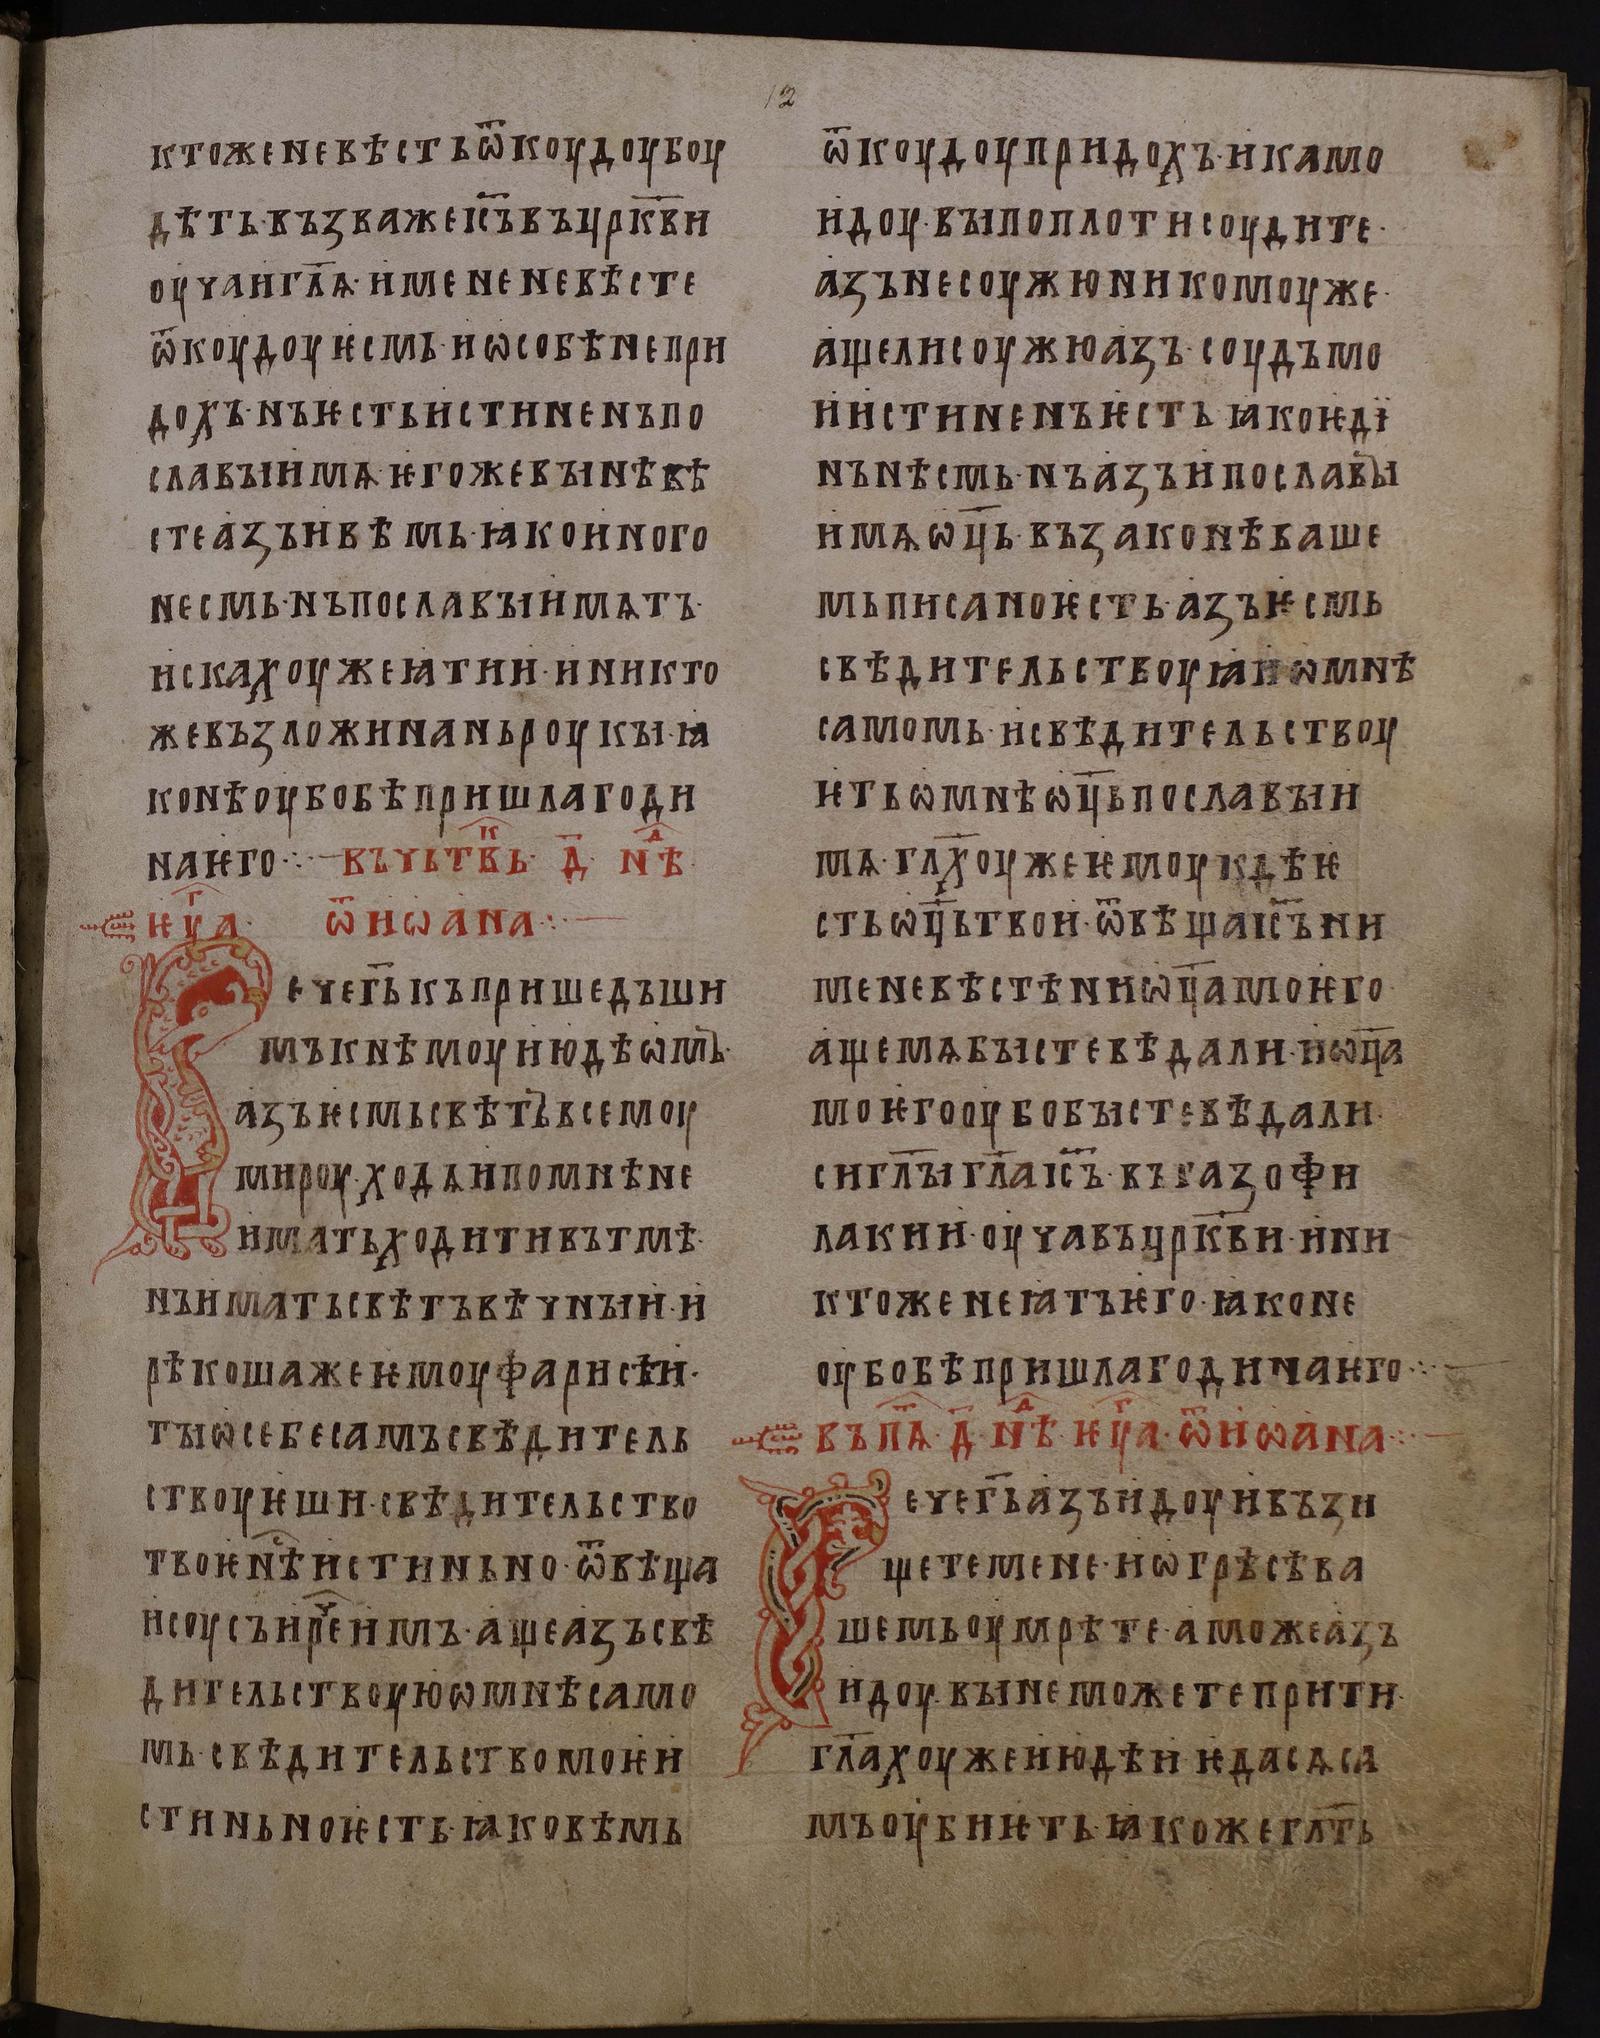 12
ктоженевѣстьѿкоудоубоу
дѣть·въꙁважеіс҃ъвъцркв҃и
оучаигл҃ѧ·имененевѣсте
ѿкоудоуѥсмь·иѡсобѣнепри
дохъ·нъѥстьистиненъпо
славꙑимѧ·ѥгожевꙑнѣвѣ
стеаꙁъивѣмь·ꙗкоиного
несмь·нъпославꙑимѧтъ·
искахоужеꙗтии·иникто
жевъꙁложинаньроукꙑ·ꙗ
конѣоубобѣпришлагоди
наѥго·:· въчьтвкь· д҃· нѣⷣ
ѥуⷢа· ѿиѡана·:·
ечегь҃къпришедъши
мъкнѣмоуиюдѣѡмъ·
аꙁъѥсмьсвѣтъвсемоу
мироу·ходѧипомнѣне
иматьходитивътмѣ·
нъиматьсвѣтъвѣчнꙑи·и
рѣкошажеѥмоуфарисѣи·
тꙑѡсебесамъсвѣдитель
ствоуѥши·свѣдительство
твоѥнⷭѣистиньно·ѿвѣща
исоусъирⷱеимъ·ащеаꙁъсвѣ
дительствоуюѡмнѣсамо
мь·свѣдительствомоѥи
стиньноѥсть·ꙗковѣмь
ѿкоудоупридохъ·икамо
идоу·вꙑпоплотисоудите·
аꙁънесоужюникомоуже·
ащелисоужюаꙁъ·соудъмо
иистиненъѥсть ꙗкоѥдї
нънѣсмь·нъаꙁъипославꙑ
имѧѡц҃ь·въꙁаконѣваше
мьписаноѥсть·аꙁъѥсмь
свѣдительствоуꙗиѡмнѣ
самомь·исвѣдительствоу
ѥтьѡмнѣѡц҃ьпославꙑи
мѧ·гл҃хоужеѥмоукдѣѥ
стьѡц҃ьтвои·ѿвѣщаіс҃ъни
меневѣстѣниѡц҃амоѥго
ащемѧбꙑстевѣдали·иѡц҃а
моѥгооубобꙑстевѣдали·
сигл҃ꙑгл҃аіс҃ъ·въгаꙁофи
лакии·оучавъцркв҃и·ини
ктоженеꙗтъѥго·ꙗконе
оубобѣпришлагодинаѥго·:·
въпⷮѧ·д҃·нѣⷣ·ѥуⷢа·ѿиѡана·:·
ечегь҃аꙁъидоуивъꙁи
щетемене·иѡгрѣсѣва
шемьоумрѣте·аможеаꙁъ
идоу·вꙑнеможетеприти·
гл҃ахоужеиюдѣи·ѥдасѧса
мъоубиѥть·ꙗкожегл҃ть